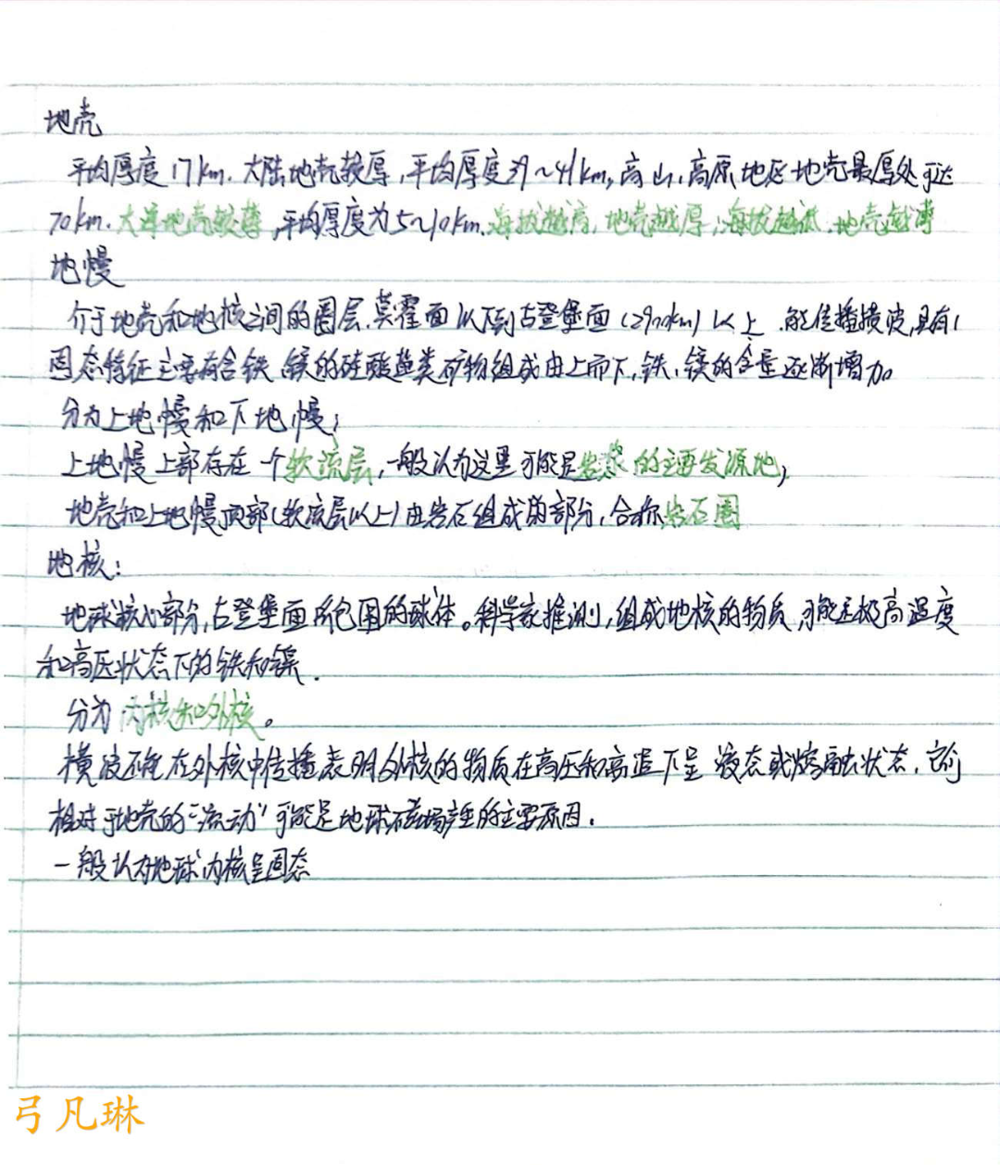 地壳
平均厚度17km.大陆地壳较厚,平均厚度39~41km,高山、高原地区地壳最厚处可达
70km.大洋地壳较薄,平均厚度为5~10km.海拔越高,地壳越厚;海拔越低,地壳越薄
地慢
介于地壳和地核之间的圈层.莫霍面以下到古登堡面(2900km)以上.能传播横波,具有
固态特征主要有含铁、镁的硅酸盐类矿物组成由上而下,铁、镁的含量逐渐增加
分为上地慢和下地慢;
上地慢上部存在一个软流层,一般认为这里可能是岩浆的主要发源地,
地壳和上地慢顶部(软流层以上)由岩石组成的部分,合称岩石圈
地核:
地球核心部分,古登堡面所包围的球体。科学家推测,组成地核的物质,可能是极高温度
和高压状态下的铁和镍.
分为内核和外核。
横波不能在外核中传播表明外核的物质在高压和高温下呈液态或熔融状态.它们
相对于地壳的“流动”可能是地球磁场产生的主要原因.
一般认为地球内核呈固态
弓凡琳